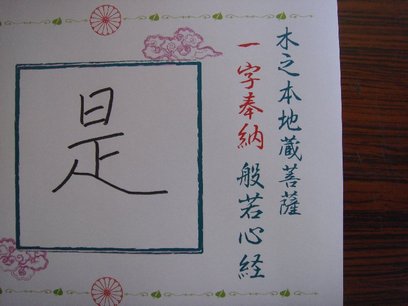 木之本地蔵菩薩
一字奉納 般若心経
是